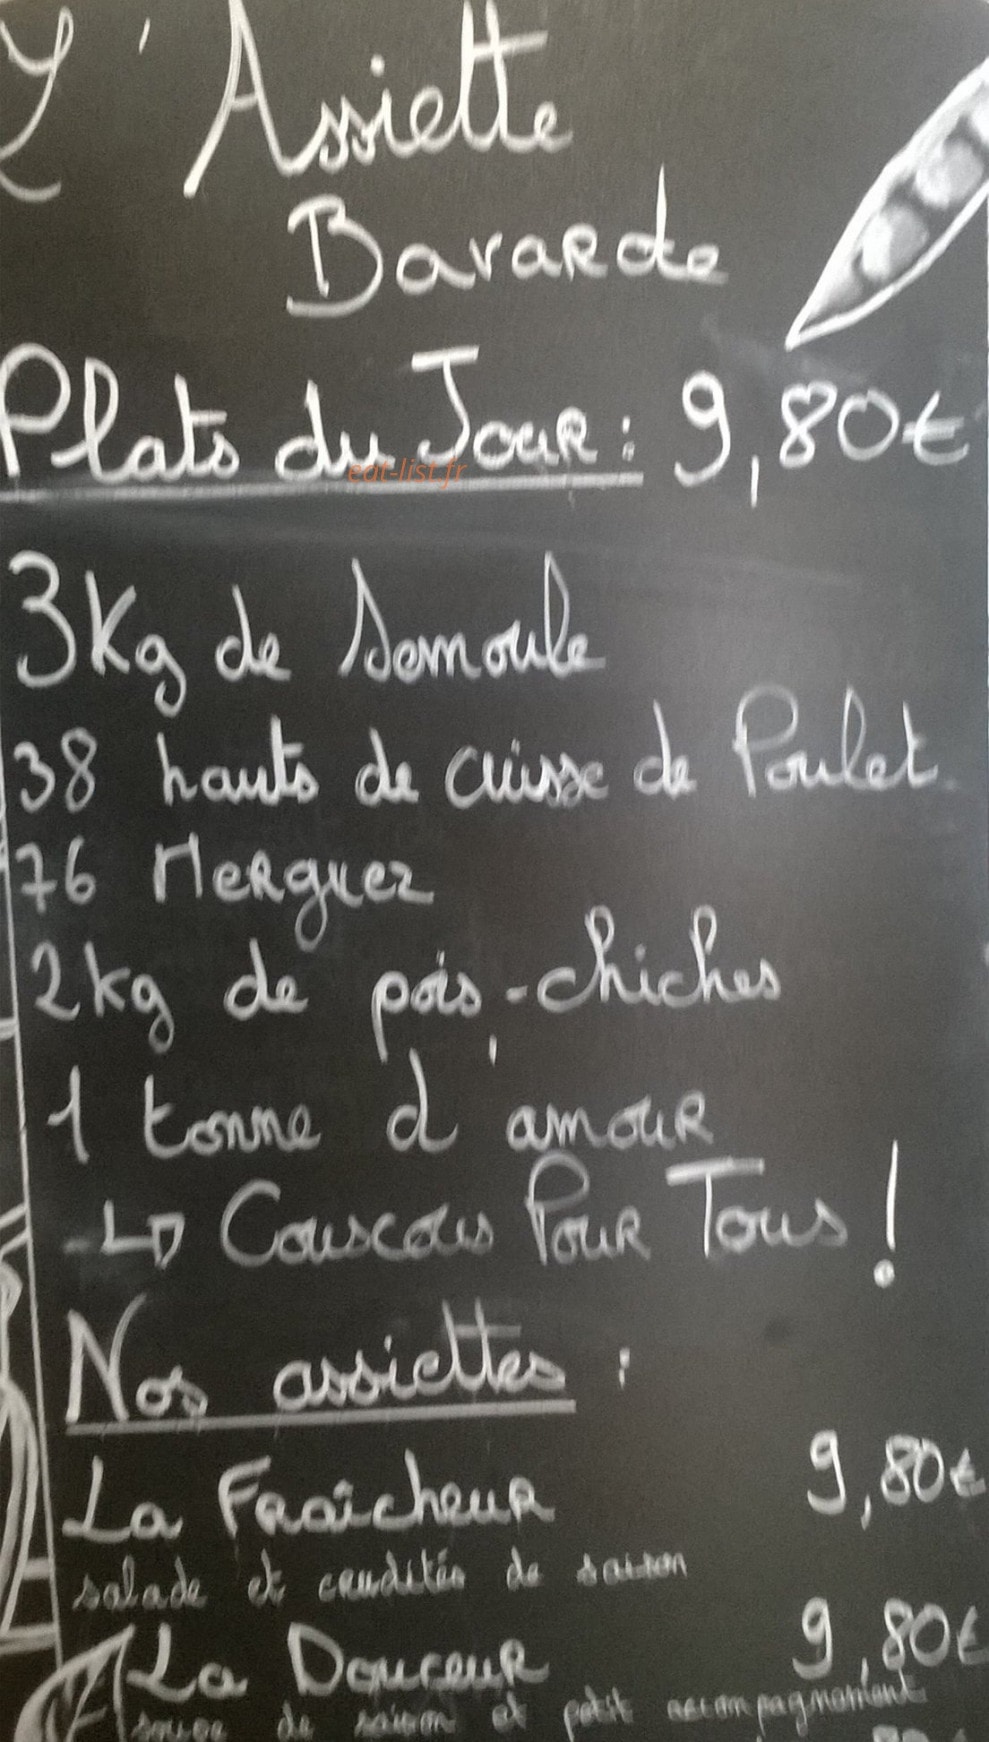 L'Assiette
Bavarde
Plats du Jour : 9,80€
eat-list.fr
3Kg de Semoule
38 hauts de cuisse de Poulet
76 Merguez
2kg de pois-chiches
1 tonne d'amour
↳ Couscous Pour Tous !
Nos assiettes :
La Fraîcheur 9,80€
salade et crudités de saison
La Douceur 9,80€
soupe de saison et petit accompagnement